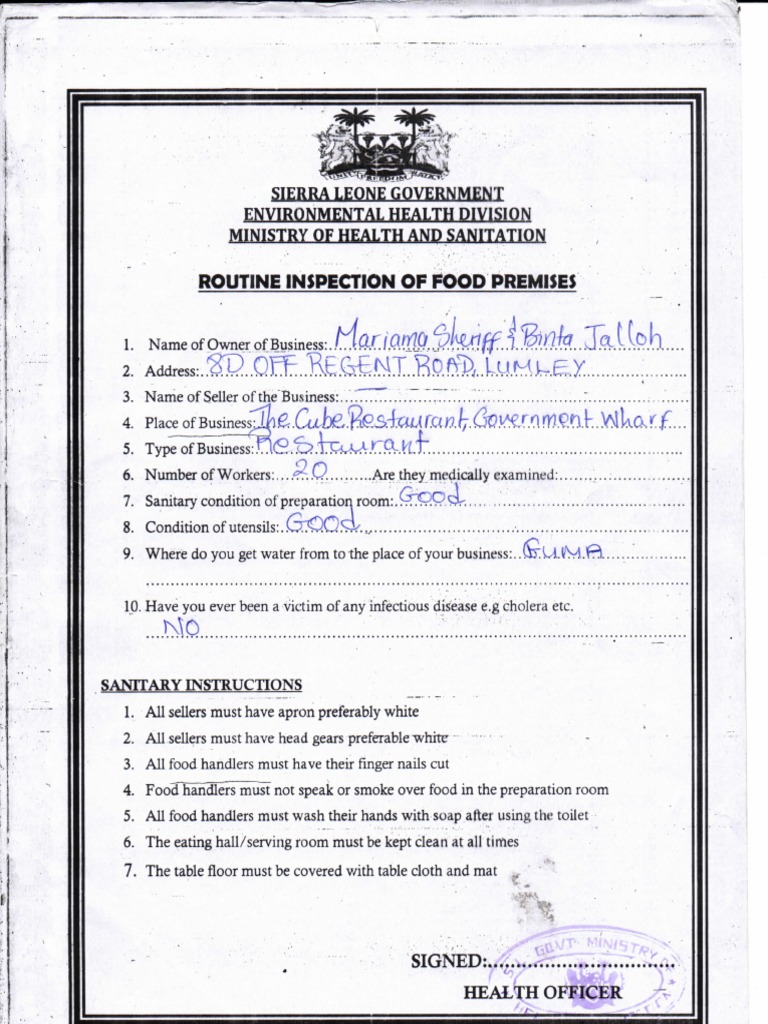 SIERRA LEONE GOVERNMENT
ENVIRONMENTAL HEALTH DIVISION
MINISTRY OF HEALTH AND SANITATION
ROUTINE INSPECTION OF FOOD PREMISES
1. Name of Owner of Business: Mariama Sheriff & Binta Jalloh
2. Address: 8D OFF REGENT ROAD, LUMLEY
3. Name of Seller of the Business:
4. Place of Business: The Cube Restaurant, Government Wharf
5. Type of Business: Restaurant
6. Number of Workers: 20 Are they medically examined:
7. Sanitary condition of preparation room: Good
8. Condition of utensils: Good
9. Where do you get water from to the place of your business: GUMA
10. Have you ever been a victim of any infectious disease e.g cholera etc.
NO
SANITARY INSTRUCTIONS
1. All sellers must have apron preferably white
2. All sellers must have head gears preferable white
3. All food handlers must have their finger nails cut
4. Food handlers must not speak or smoke over food in the preparation room
5. All food handlers must wash their hands with soap after using the toilet
6. The eating hall/serving room must be kept clean at all times
7. The table floor must be covered with table cloth and mat
S.L. GOVT MINISTRY OF
SIGNED:
HEALTH OFFICER